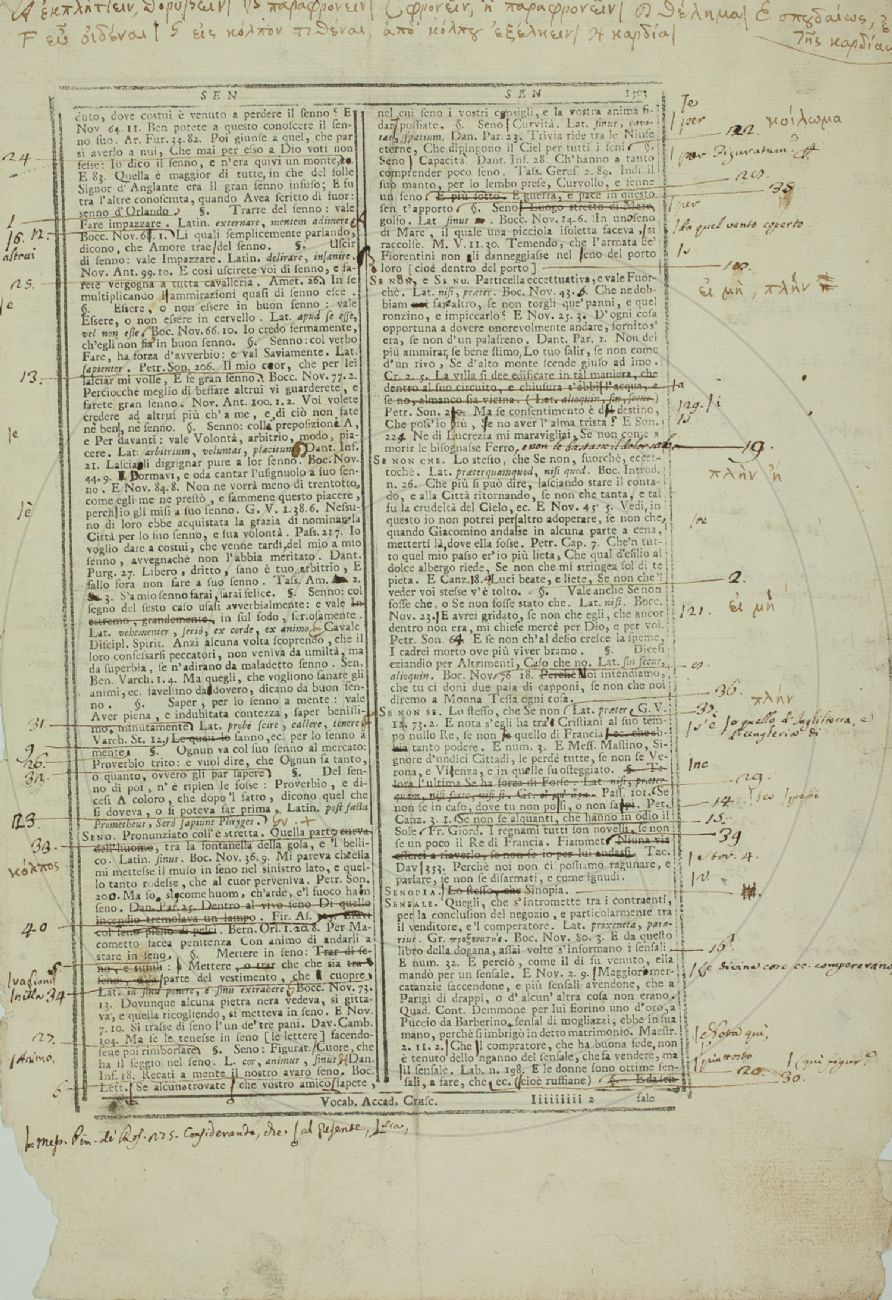 Α ἐκπλήττειν, θορυβεῖν| Β παραφρονεῖν| C φρονεῖν, ἢ παραφρονεῖν| D θέλημα| E σπουδαίως,
F εὖ εἰδέναι| G εἰς κόλπον τιθέναι, ἀπὸ κόλπου ἐξέλκειν| H καρδία|
τῆς καρδίας
SEN SEN 1503
duto, dove costui è venuto a perdere il senno? E
Nov. 64. 11. Ben potete a questo conoscere il sen-
no suo. Ar. Fur. 24. 82. Poi giunse a quel, che par
sì averlo a nui, Che mai per esso a Dio voti non
fesse: Io dico il senno, e n'era quivi un monte,
E 83. Quella è maggior di tutte, in che del folle
Signor d'Anglante era il gran senno infuso; E fu
tra l'altre conosciuta, quando Avea scritto di fuor:
senno d'Orlando. §. Trarre del senno: vale
Fare impazzare. Latin. externare, mentem adimere
Bocc. Nov. 61. 1. Li quali semplicemente parlando,
dicono, che Amore trae del senno. §. Uscir
di senno: vale Impazzare. Latin. delirare, insanire.
Nov. Ant. 99. 10. E così uscirete voi di senno, e fa-
rete vergogna a tutta cavalleria. Amet. 26. In se
multiplicando ammirazioni quasi di senno esce.
§. Essere, o non essere in buon senno: vale
Essere, o non essere in cervello. Lat. apud se esse,
vel non esse. Bocc. Nov. 66. 10. Io credo fermamente,
ch'egli non sia in buon senno. §. Senno: col verbo
Fare, ha forza d'avverbio: e val Saviamente. Lat.
sapienter. Petr. Son. 206. Il mio cuor, che per lei
lasciar mi volle, E fe gran senno. Bocc. Nov. 77. 2.
Perciocchè meglio di beffare altrui vi guarderete, e
farete gran senno. Nov. Ant. 100. 1. 2. Voi volete
credere ad altrui più ch'a me, e di ciò non fate
nè ben, ne senno. §. Senno: colla preposizione A,
e Per davanti: vale Volontà, arbitrio, modo, pia-
cere. Lat. arbitrium, voluntas, placitum. Dant. Inf.
21. Lasciagli digrignar pure a lor senno. Boc. Nov.
44. 9. Dormavi, e oda cantar l'usignuolo a suo sen-
no. E Nov. 84. 8. Non ne vorrà meno di trentotto,
come egli me ne prestò, e fammene questo piacere,
perch'io gli misi a suo senno. G. V. 1. 38. 6. Nessu-
no di loro ebbe acquistata la grazia di nominar la
Città per lo suo senno, e sua volontà. Pass. 217. Io
voglio dare a costui, che venne tardi, del mio a mio
senno, avvegnachè non l'abbia meritato. Dant.
Purg. 27. Libero, dritto, sano è tuo arbitrio, E
fallo fora non fare a suo senno. Tass. Am. 2.
3. S'a mio senno farai, farai felice. §. Senno: col
segno del sesto caso usasi avverbialmente: e vale In
estremo, grandemente, in sul sodo, seriosamente.
Lat. vehementer, seriò, ex corde, ex animo. Cavale
Discipl. Spirit. Anzi alcuna volta scoprendo, che il
loro confessarsi peccatori, non veniva da umiltà, ma
da superbia, se n'adirano da maladetto senno. Sen.
Ben. Varch. 1. 4. Ma quegli, che vogliono sanare gli
animi, ec. favellino da dovero, dicano da buon sen-
no. §. Saper, per lo senno a mente: vale
Aver piena, e indubitata contezza, saper benissi-
mo, minutamente. Lat. probè scire, callere, tenere
Varch. St. 12. Le quali io sanno, ec. per lo senno a
mente. §. Ognun va col suo senno al mercato:
Proverbio trito: e vuol dire, che Ognun fa tanto,
o quanto, ovvero gli par sapere. §. Del sen-
no di poi, n'è ripien le fosse: Proverbio, e di-
cesi A coloro, che dopo 'l fatto, dicono quel che
si doveva, o si poteva far prima. Latin. post facta
Prometheus, Serò sapiunt Phryges.
SENO. Pronunziato coll'è stretta. Quella parte curva
dell'huomo, tra la fontanella della gola, e 'l belli-
co. Latin. sinus. Boc. Nov. 36. 9. Mi pareva ch'ella
mi mettesse il muso in seno nel sinistro lato, e quel-
lo tanto rodesse, che al cuor perveniva. Petr. Son.
202. Ma so, siccome huom, ch'arde, e 'l fuoco ha in
seno. Dan. Par. 25. Dentro al vivo seno Di quello
incendio tremolava un lampo. Fir. As.
col seno pieno di pesci. Bern. Orl. 1. 20. 8. Per Ma-
cometto facea penitenza Con animo di andarli a
stare in seno. §. Mettere in seno: Trar di se-
no, e simili: Mettere, o trar che che sia tra 'l
parte del vestimento, che 'l cuopre
Lat. in sinu ponere, e sinu extrahere. Bocc. Nov. 73.
13. Dovunque alcuna pietra nera vedeva, si gitta-
va, e quella ricogliendo, si metteva in seno. E Nov.
7. 10. Si trasse di seno l'un de' tre pani. Dav. Camb.
104. Ma se la tenesse in seno [le lettere] facendo-
sene poi rimborsare. §. Seno: Figurat. Cuore, che
ha il seggio nel seno. L. cor, animus, sinus. Dan.
Inf. 18. Recati a mente il nostro avaro seno. Boc.
Lett. Se alcuno trovate, che vostro amico sapete,
nel cui seno i vostri consigli, e la vostra anima fi-
dar possiate. §. Seno Curvità. Lat. sinus, cavi-
tas, spatium. Dan. Par. 23. Trivia ride tra le Ninfe
eterne, Che dipingono il Ciel per tutti i seni. §.
Seno Capacità. Dant. Inf. 28. Ch'hanno a tanto
comprender poco seno. Tass. Geruf. 2. 89. Indi il
suo manto, per lo lembo prese, Curvollo, e fenne
un seno. E più sotto. E guerra, e pace in questo
sen t'apporto. §. Seno Luogo stretto di Mare,
golfo. Lat. sinus. Bocc. Nov. 14. 6. In un seno
di Mare, il quale una picciola isoletta faceva, si
raccolse. M. V. 11. 30. Temendo, che l'armata de'
Fiorentini non gli danneggiasse nel seno del porto
loro [cioè dentro del porto]
SENON, e SE NO. Particella eccettuativa, e vale Fuor-
chè. Lat. nisi, præter. Boc. Nov. 43. 6. Che ne dob-
biam far altro, se non torgli que' panni, e quel
ronzino, e impiccarlo? E Nov. 25. 3. D'ogni cosa
opportuna a dovere onorevolmente andare, fornito s'
era, se non d'un palafreno. Dant. Par. 1. Non dei
più ammirar, se bene stimo, Lo tuo salir, se non come
d'un rivo, Se d'alto monte scende giuso ad imo.
Cr. 2. 5. La villa si dee edificare in tal maniera, che
dentro al suo circuito, e chiusura s'abbia l'acqua, e
se no, almanco sia vicina. (Lat. alioquin, sin, secus)
Petr. Son. Ma se consentimento è di destino,
Che poss'io più, se no aver l'alma trista? E Son.
224. Ne di Lucrezia mi maravigliai, Se non come a
morir le bisognasse Ferro, e non le bastasse il dolor solo
SE NON CHE. Lo stesso, che Se non, fuorchè, eccet-
tochè. Lat. præterquamquod, nisi quod. Boc. Introd.
n. 26. Che più si può dire, lasciando stare il conta-
do, e alla Città ritornando, se non che tanta, e tal
fu la crudeltà del Cielo, ec. E Nov. 45. 5. Vedi, in
questo io non potrei per altro adoperare, se non che,
quando Giacomino andasse in alcuna parte a cena,
metterti là, dove ella fosse. Petr. Cap. 7. Che 'n tut-
to quel mio passo er'io più lieta, Che qual d'esilio al
dolce albergo riede, Se non che mi stringea sol di te
pieta. E Canz. 18. 4. Luci beate, e liete, Se non che 'l
veder voi stesse v'è tolto. §. Vale anche Se non
fosse che, o Se non fosse stato che. Lat. nisi. Bocc.
Nov. 23. E avrei gridato, se non che egli, che ancor
dentro non era, mi chiese mercè per Dio, e per voi.
Petr. Son. 64. E se non ch'al desio cresce la speme,
I cadrei morto ove più viver bramo. §. Dicesi
eziandio per Altrimenti, Caso che no. Lat. sin secus,
alioquin. Boc. Nov. 76. 18. Perchè Noi intendiamo,
che tu ci doni due paia di capponi, se non che noi
diremo a Monna Tessa ogni cosa.
SE NON SE. Lo stesso, che Se non. Lat. præter. G. V.
12. 73. 2. E nota s'egli ha tra' Cristiani al suo tem-
po nullo Re, se non se quello di Francia, ec. che ab-
bia tanto podere. E num. 3. E Mess. Mastino, Si-
gnore d'undici Cittadi, le perdè tutte, se non se Ve-
rona, e Vicenza, e in quelle fu osteggiato. §. Ta-
lora l'ultima Se ha forza di Forse. Lat. nisi, præter
quam, nisi forte, nisi si. Pass. 101. Se
non se in caso, dove tu non possi, o non sappi. Pet.
Canz. 3. 1. Se non se alquanti, che hanno in odio il
Sole. Fr. Giord. I regnami tutti son novelli, se non
se un poco il Re di Francia. Fiammet. Niuna via
esserci a riaverlo, se non se io per lui andassi. Tac.
Dav. 353. Perchè noi non ci possiamo ragunare, e
parlare, se non se disarmati, e come ignudi.
SENOPIA. Lo stesso, che Sinopia.
SENSALE. Quegli, che s'intromette tra i contraenti,
per la conclusion del negozio, e particolarmente tra
il venditore, e 'l comperatore. Lat. proxeneta, para-
rius. Gr. προξενητής. Boc. Nov. 80. 3. E da questo
libro della dogana, assai volte s'informano i sensali
E num. 32. E perciò, come il dì fu venuto, ella
mandò per un sensale. E Nov. 2. 9. Maggior mer-
catanzie faccendone, e più sensali avendone, che a
Parigi di drappi, o d'alcun'altra cosa non erano.
Quad. Cont. Demmone per lui fiorino uno d'oro, a
Puccio da Barberino, sensal di mogliazzi; ebbe in sua
mano, perchè si imbrigò in detto matrimonio. Maestr.
2. 11. 2. Che 'l compratore, che ha buona fede, non
è tenuto dello 'nganno del sensale, che fa vendere, ma
il sensale. Lab. n. 198. E le donne sono ottime sen-
sali, a fare, che ec. (cioè ruffiane) §. E da sen-
Vocab. Accad. Crusc. Iiiiiiiii 2 sale
24
1
16. 12.
altrui
25.
13.
|e
|è
31
9
26.
32.
23
38.
κόλπος
40
34
27.
|Animo.
6
|per
22. κοίλωμα
|per Figuratam.te
29.
35
|per
|da quel vento coperto
100.
εἰ μή, πλήν
|a
19.
πλὴν ἢ
2.
121. εἰ μὴ
36.
πλήν
|o quello d'Inghilterra, e
d'Ungheria
29.
14
15.
39
16.
|le divine cose ec. comperavano
|piuttosto
20.
30.
|Mess. Pin. de' Ros. 175. Considerando, che